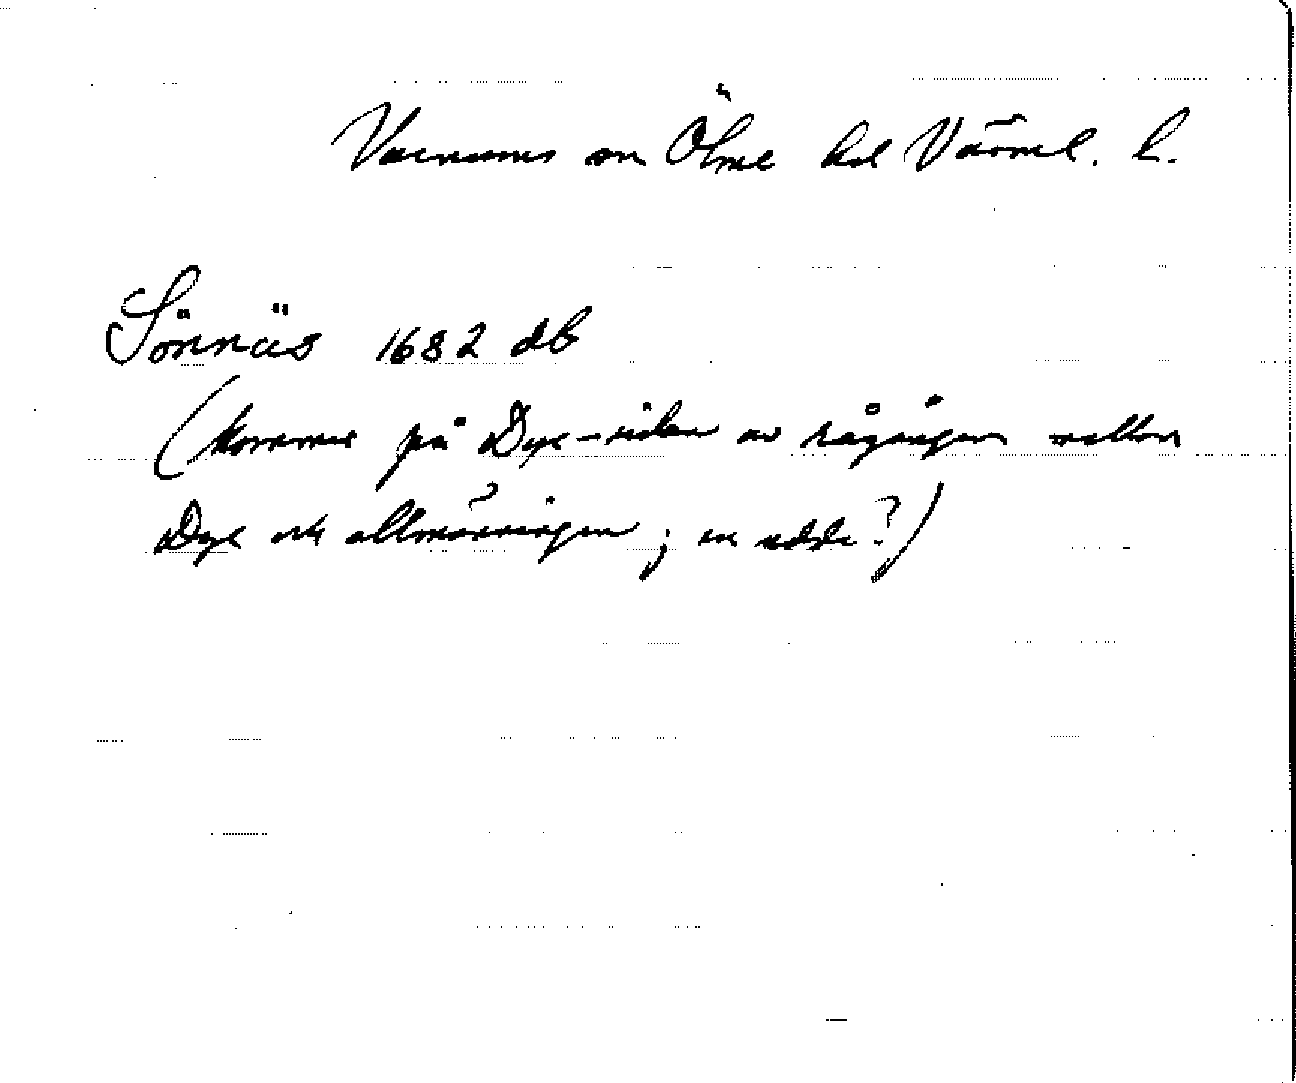 Varnums sn Ölme hd Värml. l.
Sönnäs 1682 db
(kommer på Dye-sidan av rågången mellan
Dye och allmänningen; en udde?)